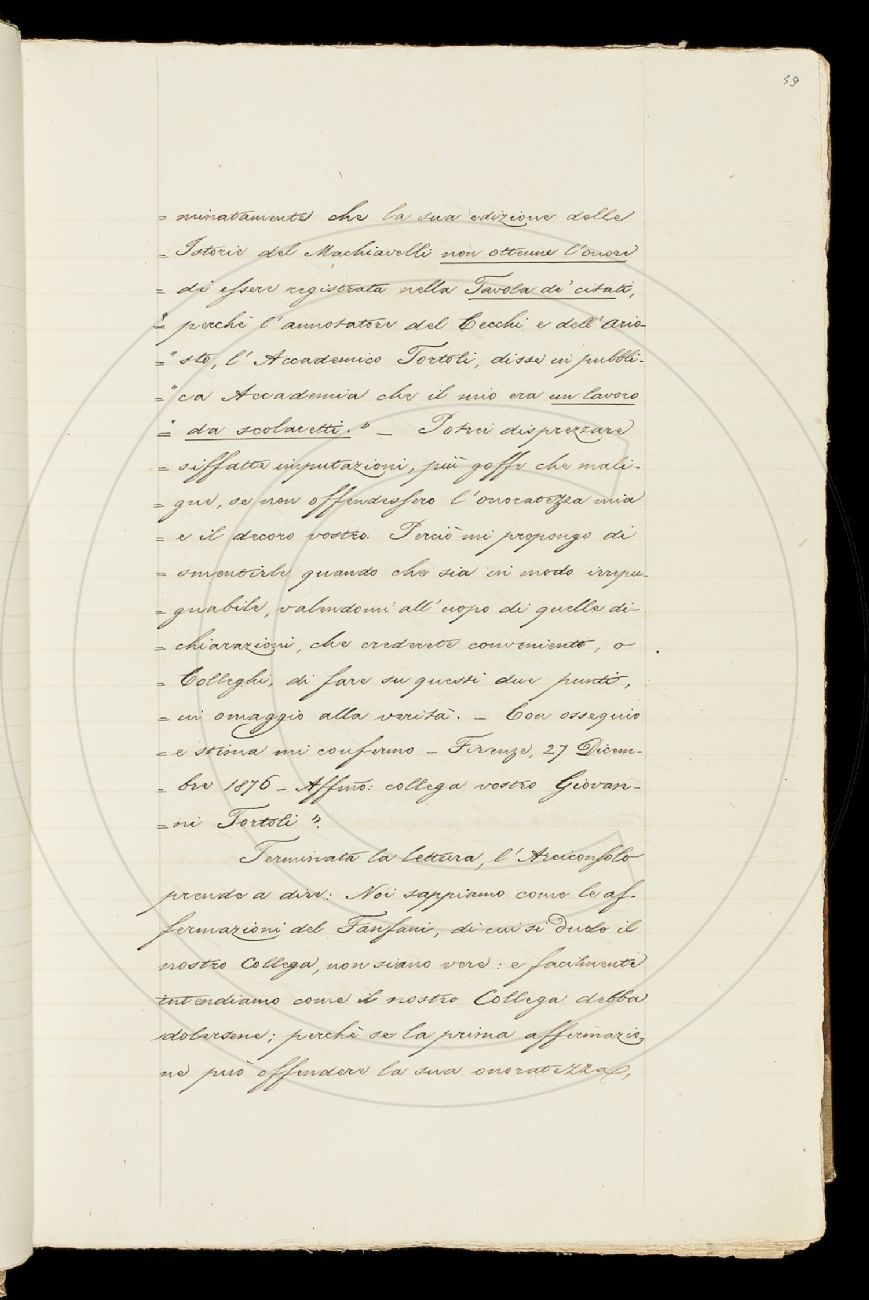 59
= minatamente che la sua edizione delle
= Istorie del Machiavelli non ottenne l'onore
= di essere registrata nella Tavola de' citati,
=" perchè l'annotatore del Cecchi e dell'Ario-
=" sto, l'Accademico Tortoli, disse in pubbli-
=" ca Accademia che il mio era un lavoro
=" da scolaretti." — Potrei disprezzare
= siffatte imputazioni, più goffe che mali-
= gne, se non offendessero l'onoratezza mia
= e il decoro vostro. Perciò mi propongo di
= smentirle quando che sia in modo irrepu-
= gnabile, valendomi all'uopo di quelle di-
= chiarazioni, che crederete conveniente, o
= Colleghi, di fare su questi due punti,
= in omaggio alla verità. — Con ossequio
= e stima mi confermo — Firenze, 27 Dicem-
= bre 1876 — Affmo: collega vostro Giovan-
= ni Tortoli".
Terminata la lettura, l'Arciconsolo
prende a dire: Noi sappiamo come le af-
fermazioni del Fanfani, di cui si duole il
nostro Collega, non siano vere: e facilmente
intendiamo come il nostro Collega debba
dolersene; perchè se la prima affermazio-
ne può offendere la sua onoratezza,